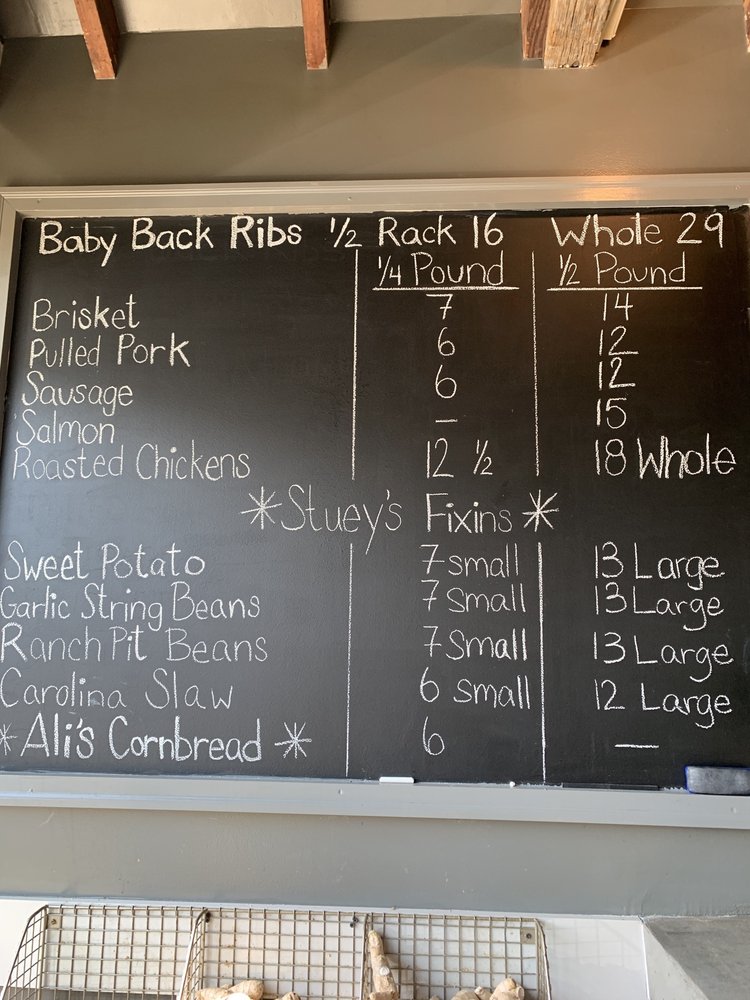 Baby Back Ribs ½ Rack 16 Whole 29
¼ Pound ½ Pound
Brisket 7 14
Pulled Pork 6 12
Sausage 6 12
Salmon — 15
Roasted Chickens 12 ½ 18 Whole
*Stuey's Fixins*
Sweet Potato 7 small 13 Large
Garlic String Beans 7 small 13 Large
Ranch Pit Beans 7 small 13 Large
Carolina Slaw 6 small 12 Large
*Ali's Cornbread* 6 —